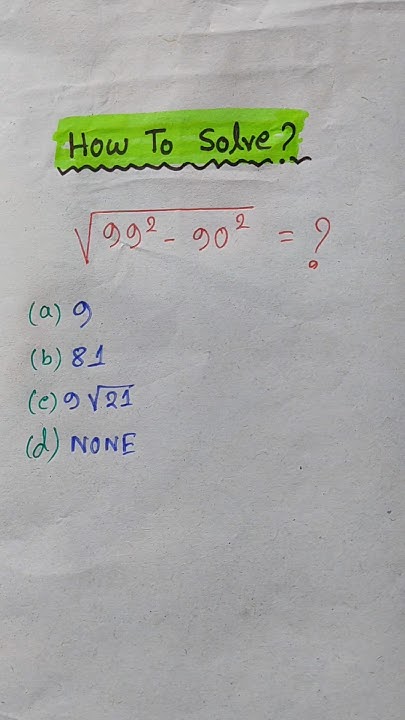 How To Solve?
√99² - 90² = ?
(a) 9
(b) 81
(c) 9√21
(d) NONE